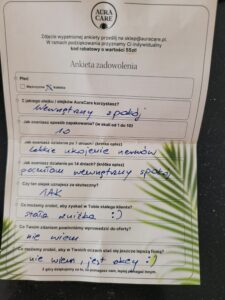 AURA
CARE
Zdjęcie wypełnionej ankiety prześlij na sklep@auracare.pl
W ramach podziękowania przyznamy Ci indywidualny
kod rabatowy o wartości 55zł!
Ankieta zadowolenia
Płeć:
Mężczyzna Kobieta
Z jakiego olejku / olejków AuraCare korzystasz?
wewnętrzny spokój
Jak oceniasz sposób zapakowania? (w skali od 1 do 10)
10
Jak oceniasz działanie po 1 dniach? (krótka opisz)
lekkie ukojenie nerwów
Jak oceniasz działanie po 14 dniach? (krótka opisz)
poczułam wewnętrzny spokój
Czy ten olejek uznajesz za skuteczny?
TAK
Co możemy zrobić, aby zyskać w Tobie stałego klienta?
stała zniżka :)
Co Twoim zdaniem powinniśmy wprowadzić do oferty?
nie wiem
Co możemy zrobić, aby w Twoich oczach stać się jeszcze lepszą firmą?
nie wiem, jest okey :)